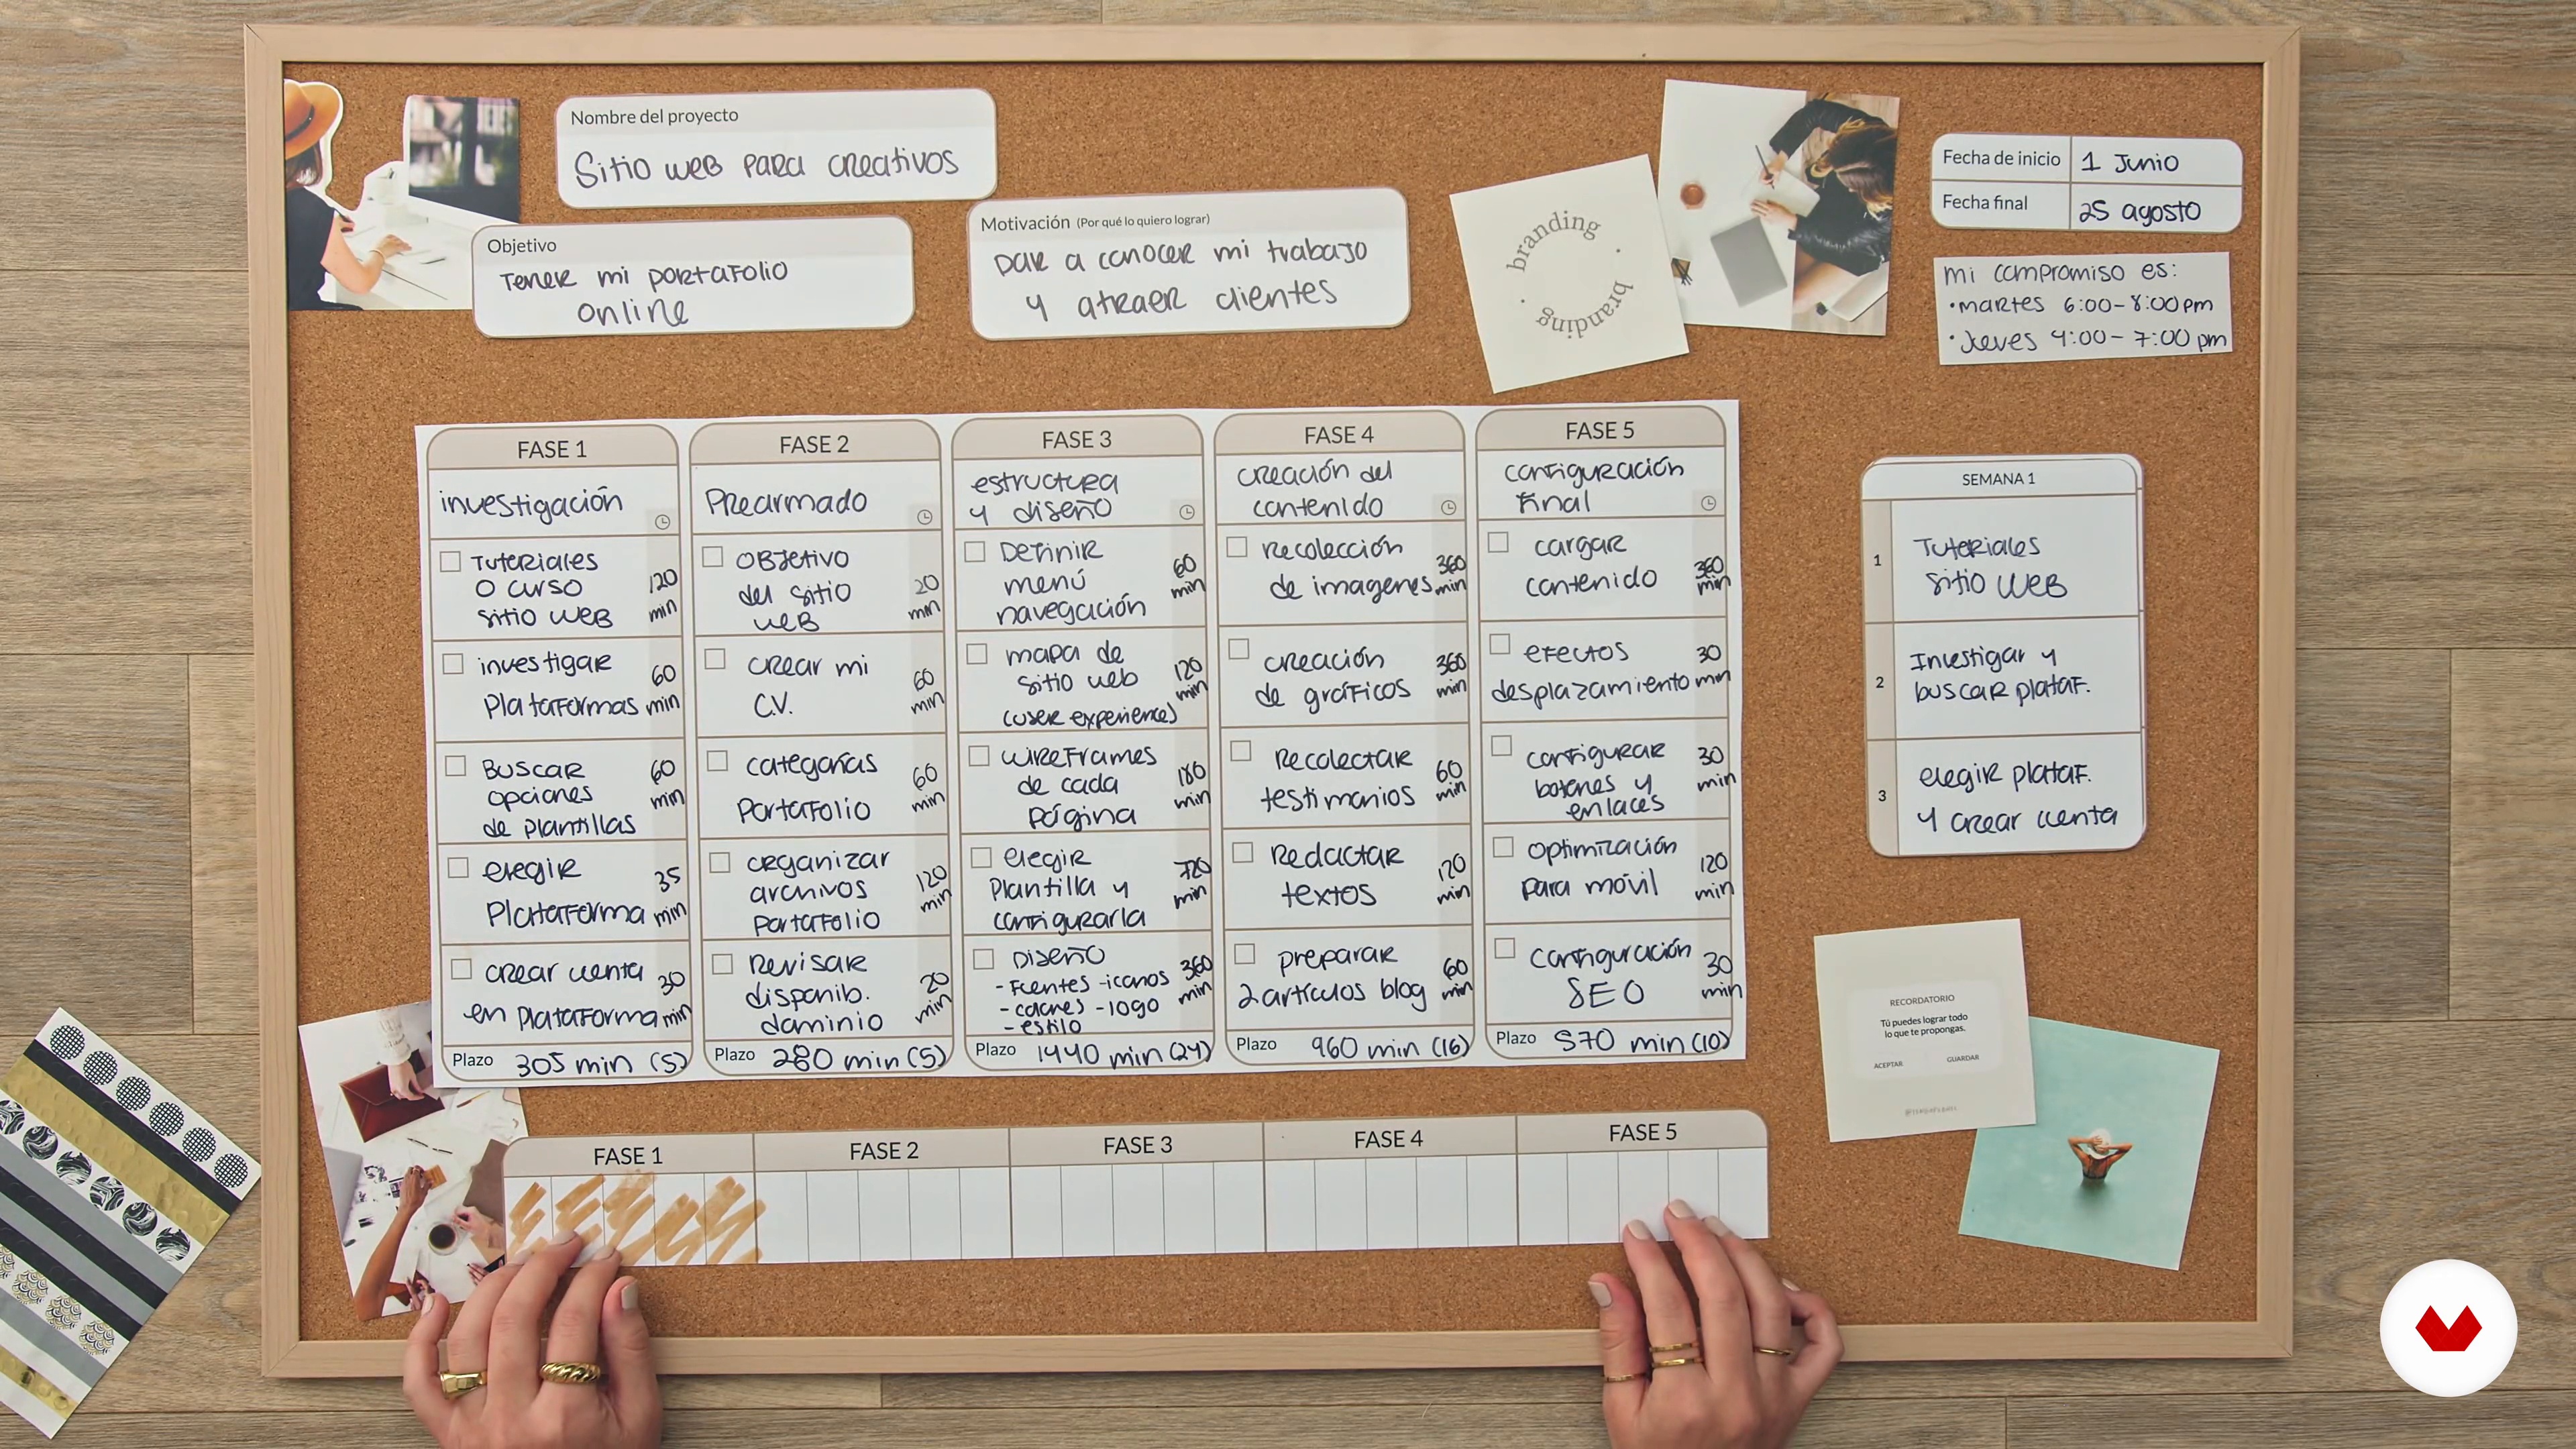 Nombre del proyecto
Sitio web para creativos
Objetivo
Tener mi portafolio
online
Motivación (Por qué lo quiero lograr)
Dar a conocer mi trabajo
y atraer clientes
branding · branding ·
Fecha de inicio 1 Junio
Fecha final 25 agosto
mi compromiso es:
• martes 6:00-8:00 pm
• Jueves 4:00-7:00 pm
FASE 1
investigación
Tutoriales
o curso
sitio web
120
min
investigar
Plataformas
60
min
Buscar
opciones
de plantillas
60
min
elegir
Plataforma
35
min
crear cuenta
en plataforma
30
min
Plazo 305 min (5)
FASE 2
Prearmado
Objetivo
del sitio
web
20
min
crear mi
C.V.
60
min
categorías
Portafolio
60
min
organizar
archivos
portafolio
120
min
Revisar
disponib.
dominio
20
min
Plazo 280 min (5)
FASE 3
estructura
y diseño
Definir
menú
navegación
60
min
mapa de
sitio web
(user experience)
120
min
wireframes
de cada
página
180
min
elegir
Plantilla y
configurarla
720
min
Diseño
- Fuentes - iconos
- colores - logo
- estilo
360
min
Plazo 1440 min (24)
FASE 4
creación del
contenido
Recolección
de imagenes
360
min
creación
de gráficos
360
min
Recolectar
testimonios
60
min
Redactar
textos
120
min
preparar
2 artículos blog
60
min
Plazo 960 min (16)
FASE 5
configuración
final
cargar
contenido
360
min
efectos
desplazamiento
30
min
configurar
botones y
enlaces
30
min
optimización
para móvil
120
min
configuración
SEO
30
min
Plazo 570 min (10)
SEMANA 1
1
Tutoriales
sitio web
2
Investigar y
buscar plataf.
3
elegir plataf.
y crear cuenta
RECORDATORIO
Tú puedes lograr todo
lo que te propongas.
ACEPTAR GUARDAR
FASE 1 FASE 2 FASE 3 FASE 4 FASE 5